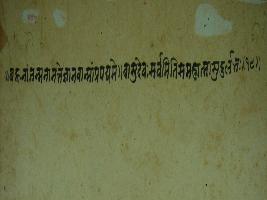 ॥बहूनांजन्मनामन्तेज्ञानवान्मांप्रपद्यते॥वासुदेवःसर्वमितिसमहात्मासुदुर्लभः॥१९॥